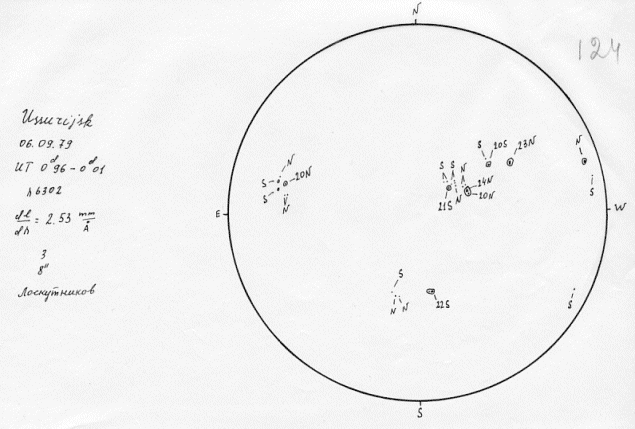 N
124
Ussurijsk
06.09.79
UT 0ᵈ96 - 0ᵈ01
λ6302
dl/dλ = 2.53 mm/Å
3
8"
Лоскутников
N
S
20N
S
N
S
20S
23N
N
S
S
N
24N
20N
21S
N
S
E
W
S
N
N
22S
S
S